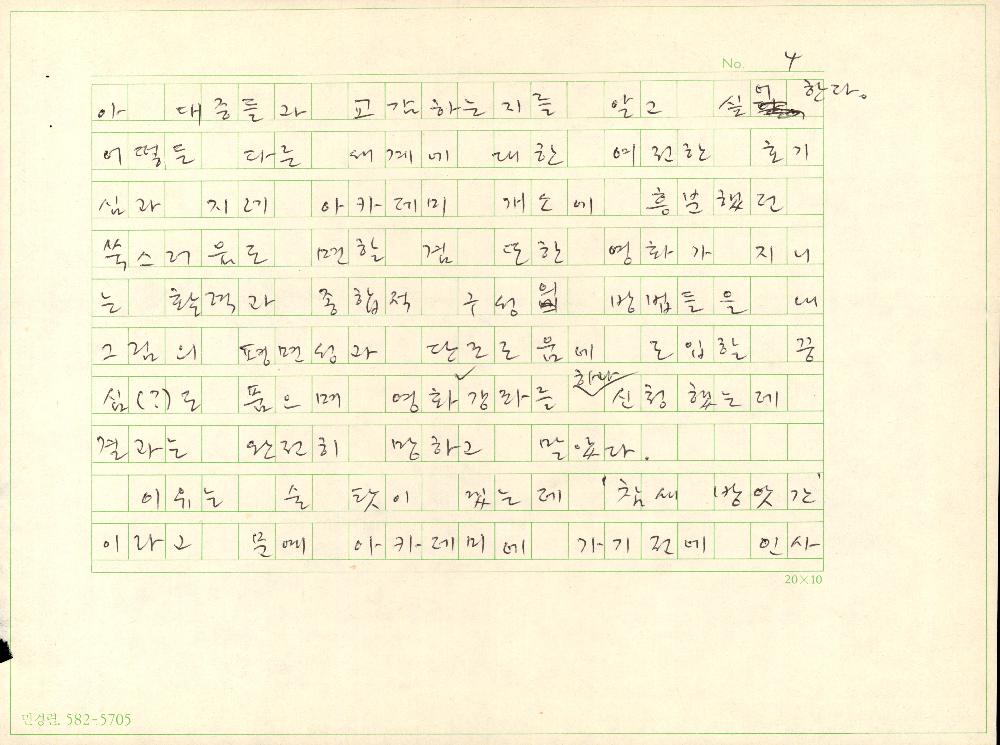 No. 4
아 대중들과 교감하는지를 알고 싶어 한다.
어떻든 다른 세계에 대한 여전한 호기
심과 지레 아카데미 개소에 흥분했던
쑥스러움도 면할 겸 또한 영화가 지니
는 활력과 종합적 구성의 방법들을 내
그림의 평면성과 단조로움에 도입할 꿈
심(?)도 품으며 영화강좌를 하나 신청했는데
결과는 완전히 망하고 말았다.
이유는 술 탓이 컸는데 '참새 방앗간'
이라고 문예 아카데미에 가기 전에 인사
20×10
민경렴. 582-5705